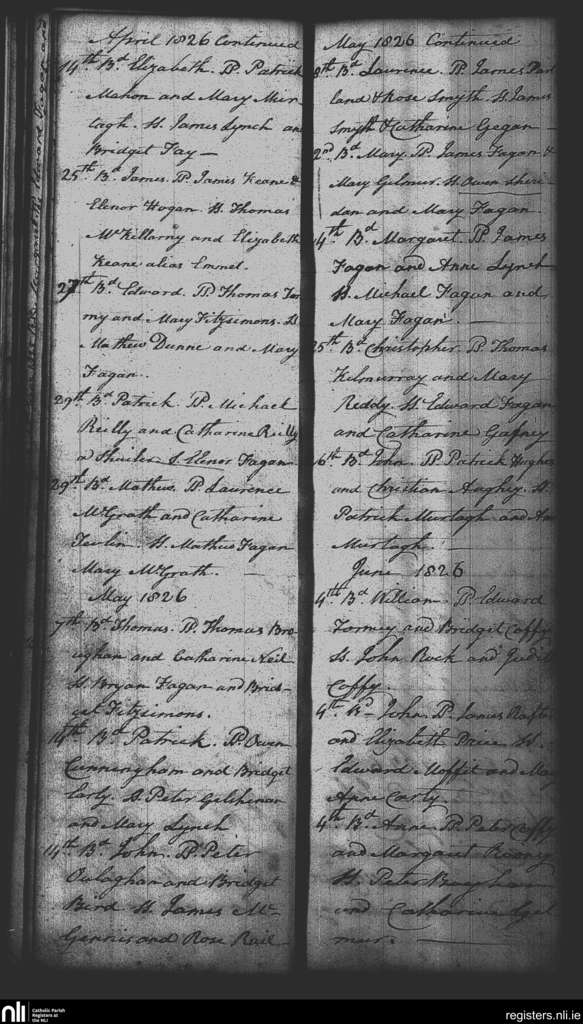 April 1826 Continued
14th Bd Elizabeth. PP. Patrick
Mahon and Mary Mur
tagh. SS. James Lynch an
Bridget Fay —
25th Bd James. PP. James Keane &
Elenor Hogan. SS. Thomas
McKillarny and Elizabeth
Keane alias Emmel.
27th Bd Edward. PP. Thomas
my and Mary Fitzsimons. SS
Mathew Dunne and Mary
Fagan.
29th Bd Patrick. PP. Michael
Reilly and Catharine Reilly
S. Elenor Fagan
29th Bd Mathew. PP. Laurence
McGrath and Catharine
SS. Mathew Fagan
Mary McGrath. —
May 1826
7th Bd Thomas. PP. Thomas Bro
ughan and Catharine Neil
SS Bryan Fagan and Brid-
get Fitzsimons.
14th Bd Patrick. PP. Owen
Cunningham and Bridget
Carly. SS. Peter
and Mary Lynch
14th Bd John. PP. Peter
Oulaghan and Bridget
Bird SS. James Mc-
Gennis and Rose Reil-
May 1826 Continued
Bd Laurence. PP. James
land & Rose Smyth. SS. James
Smyth & Catharine Gegan —
2nd Bd Mary. PP. James Fagan &
Mary Gilmer. SS. Owen Sheri-
dan and Mary Fagan.
4th Bd Margaret. PP. James
Fagan and Anne Lynch
SS. Michael Fagan and
Mary Fagan. —
25th Bd Christopher. PP. Thomas
Kilmurray and Mary
Reddy. SS. Edward Fagan
and Catharine Gafney
6th Bd John. PP. Patrick Hughes
and Christian Aughey. SS.
Patrick Murtagh and An
Murtagh. —
June 1826
4th Bd William. PP. Edward
Tormey and Bridget Coffy
SS. John Rock and Judith
Coffy.
4th Bd John. P. James
and Elizabeth Price SS.
Edward Moffit and Ma
Anne Carty
4th Bd Anne. PP. Peter Coffy
and Margaret Rooney
SS. Peter Broughan
and Catharine Egel
mur. —
nli
Catholic Parish
Registers at
the NLI
registers.nli.ie